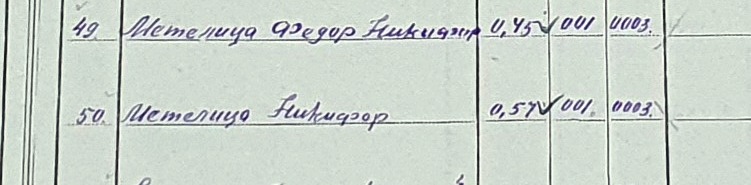 49. Метелица Федор Никифор 0,45 001 0003.
50. Метелица Никифор 0,57 001. 0003.